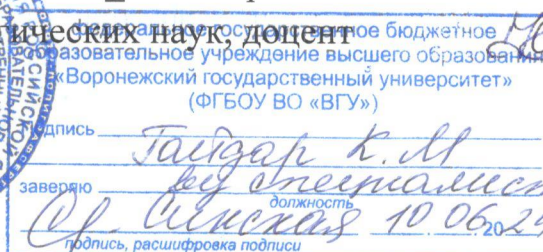 федеральное государственное бюджетное
ических наук, доцент
образовательное учреждение высшего образования
«Воронежский государственный университет»
(ФГБОУ ВО «ВГУ»)
подпись Гайдар К.М
заверяю вед специалист
должность
Синская 10 06 20 24
подпись, расшифровка подписи